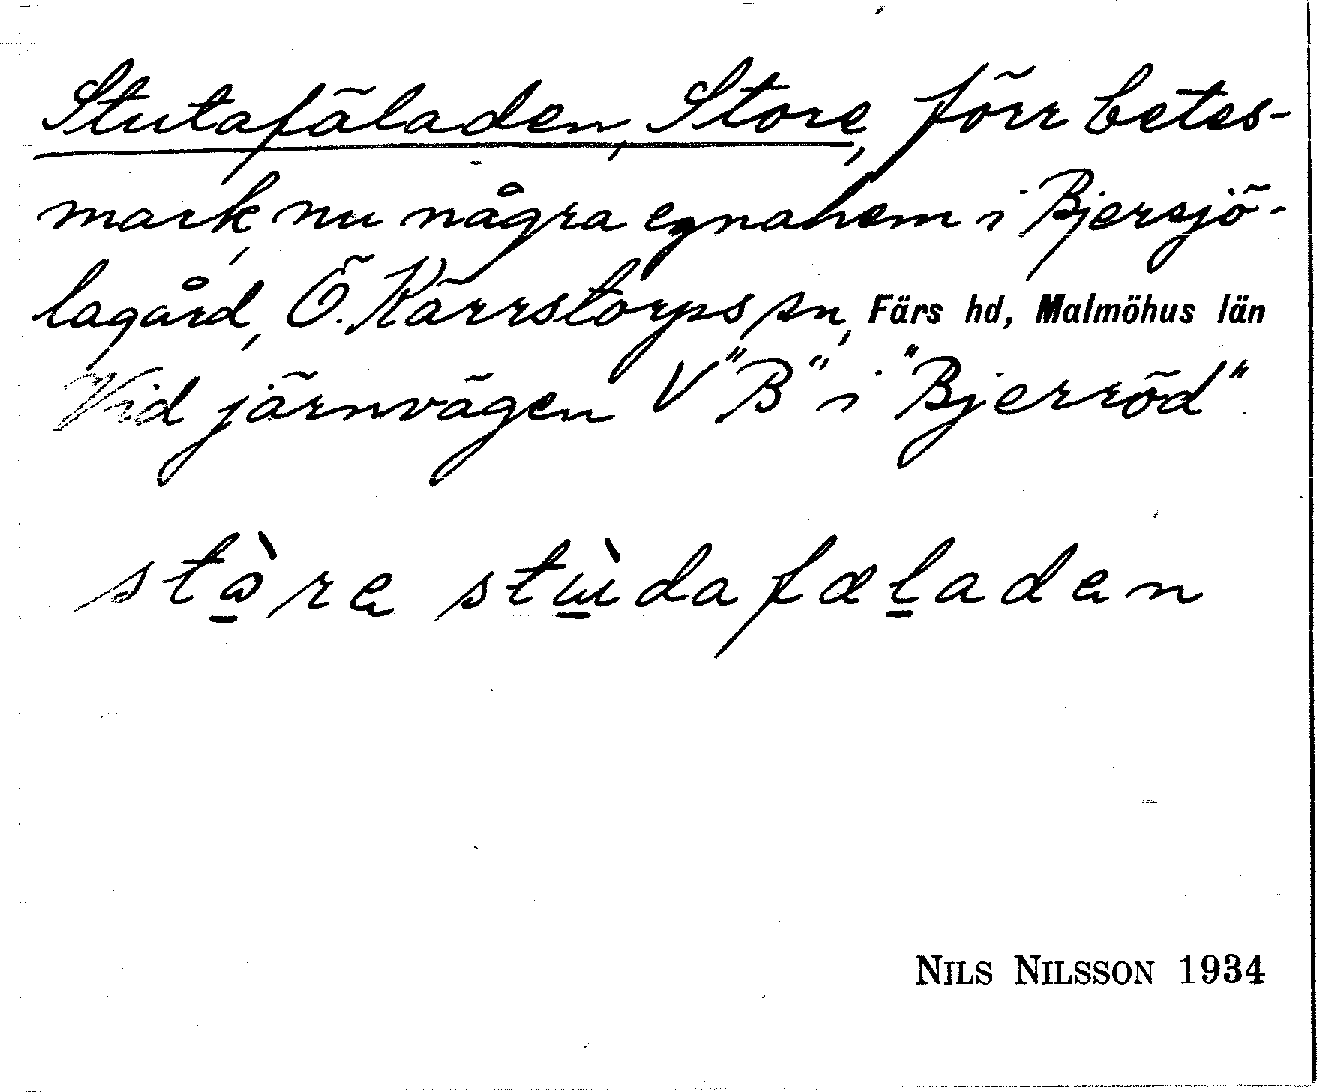 Stutafäladen, Store, förr betes-
mark, nu några egnahem i Bjersjö-
lagård, Ö. Kärrstorps sn, Färs hd, Malmöhus län
Vid järnvägen V "B" i "Bjerröd"
stòre stùdafæladen
NILS NILSSON 1934